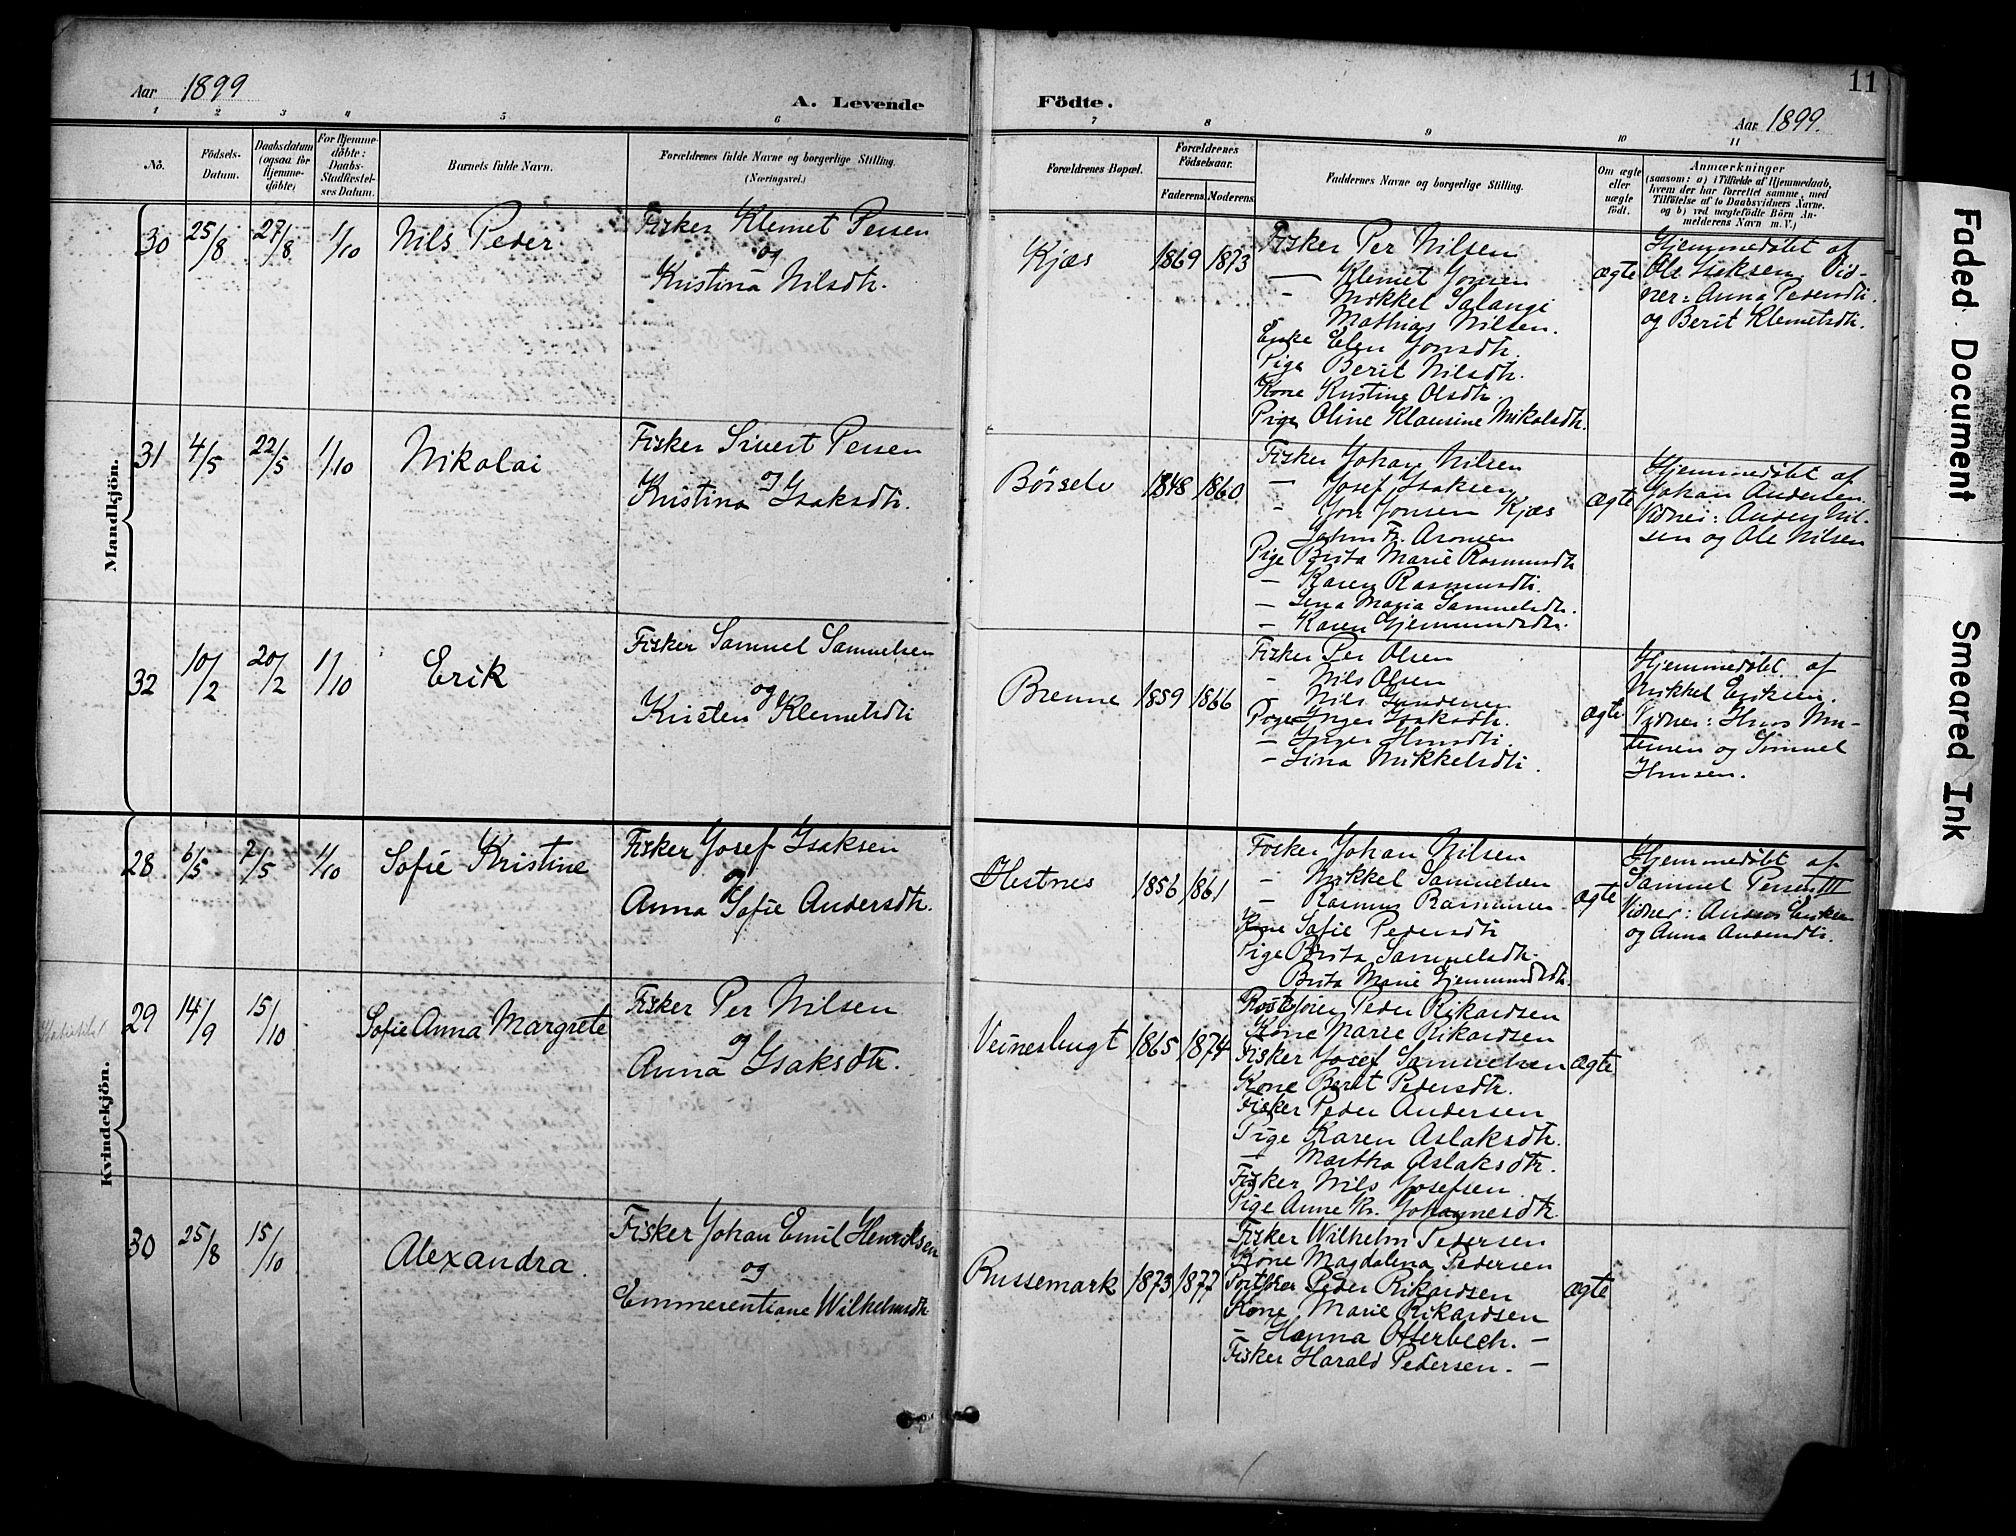 11
Aar 1899
A. Levende Födte.
Aar 1899.
1 2 3 4 5 6 7 8 9 10 11
No.
Födsels-Datum.
Daabsdatum (ogsaa for Hjemme-döbte)
For Hjemme-döbte: Daabs-Stadfæstel-ses Datum.
Barnets fulde Navn.
Forældrenes fulde Navne og borgerlige Stilling. (Næringsvei.)
Forældrenes Bopæl.
Forældrenes Födselsaar.
Faderens Moderens
Faddernes Navne og borgerlige Stilling.
Om ægte eller uægte födt.
Anmærkninger
(saasom: a) i Tilfælde af Hjemmedaab, hvem der har forrettet samme, med Tilföielse af to Daabsvidners Navne, og b) ved uægtefödte Börn An-melderens Navn m. V.)
Mandkjön.
30 25/8 27/8 1/10 Nils Peder
Fisker Klemet Persen
og
Kristina Nilsdtr.
Kjæs 1869 1873
Fisker Per Nilsen
— Klemet Jonsen
- Mikkel Salangi
Mathias Nilsen.
Enke Elen Jonsdtr.
Pige Berit Nilsdtr.
Kone Kristine Olsdtr.
Pige Oline Klausine Mikalsdtr.
ægte
Hjemmedøbt af
Ole Isaksen. Vid-
ner: Anna Pedersdtr.
og Berit Klemetsdtr.
31 4/5 22/5 1/10 Nikolai
Fisker Sivert Persen
og
Kristina Isaksdtr.
Børselv 1848 1860
Fisker Johan Nilsen
— Josef Isaksen
- Jon Jonsen Kjæs
Johan Fr. Aronsen
Pige Brita Marie Rasmusdtr
— Karen Rasmusdtr.
— Lina Maria Samuelsdtr.
— Karen Gjermundsdtr.
ægte
Hjemmedøbt af
Johan Andersen.
Vidner: Anders Nil-
sen og Ole Nilsen
32 10/2 20/2 1/10 Erik
Fisker Samuel Samuelsen
og
Kristen Klemetsdtr
Brenne 1859 1866
Fisker Per Olsen
- Nils Olsen
- Nils
Pige Inger Isaksdtr.
— Inger Hansdtr.
— Lina Mikkelsdtr.
ægte
Hjemmedøbt af
Mikkel Eriksen.
Vidner: Hans
og Samuel
Hansen.
Kvindekjön.
28 6/5 7/5 1/10 Sofie Kristine
Fisker Josef Isaksen
og
Anna Sofie Andersdtr.
Hestnes 1856 1861
Fisker Johan Nilsen
- Mikkel Samuelsen
- Rasmus Rasmussen
Kone Sofie Pedersdtr
Pige Brita Samuelsdtr.
Brita Marie Gjermundsdtr.
ægte
Hjemmedøbt af
Samuel Persen III
Vidner: Anders Eriksen
og Anna Andersdtr.
29 14/9 15/10 Sofie Anna Margrete
Fisker Per Nilsen
og
Anna Isaksdtr.
Veinesbugt 1865 1874
Peder Rikardsen
Kone Marie Rikardsen
Fisker Josef Samuelsen
Kone Berit Pedersdtr.
Fisker Peder Andersen
Pige Karen Aslaksdtr.
— Martha Aslaksdtr.
Fisker Nils Josefsen
Pige Anne Kr. Johannesdtr.
ægte
30 25/8 15/10 Alexandra.
Fisker Johan Emil Henriksen
og
Emmerentiane Wilhelmsdtr
Russemark 1873 1877
Fisker Wilhelm Pedersen
Kone Magdalena Pedersen
Peder Rikardsen
Kone Marie Rikardsen
— Hanna Otterbech. —
Fisker Harald Pedersen. —
ægte
Faded Document
Smeared Ink